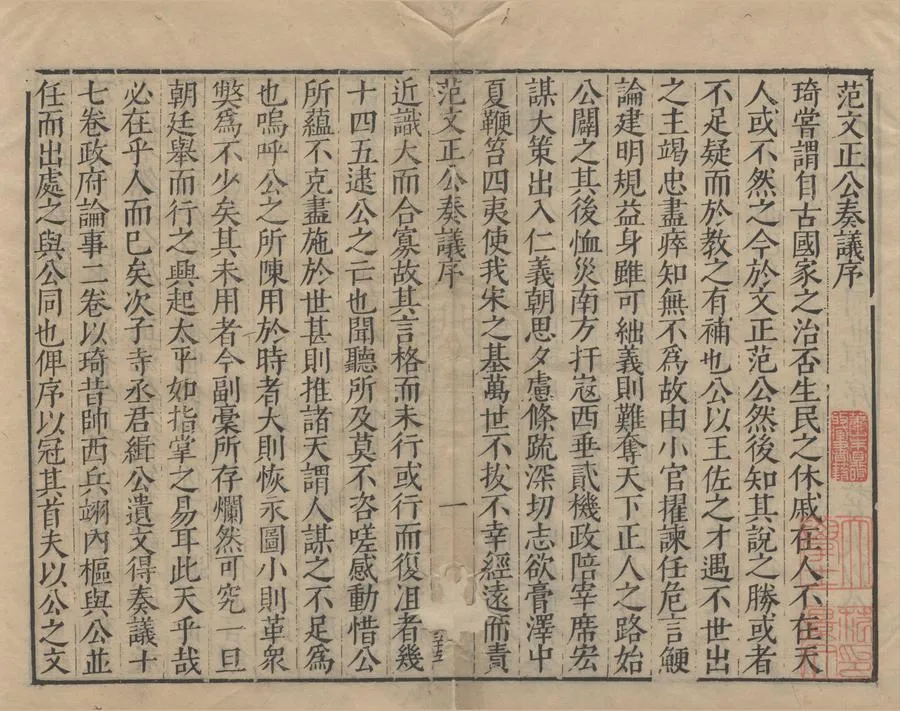 范文正公奏議序
琦嘗謂自古國家之治否生民之休戚在人不在天
人或不然之今於文正范公然後知其說之勝或者
不足疑而於教之有補也公以王佐之才遇不世出
之主竭忠盡瘁知無不爲故由小官擢諫任危言鯁
論建明規益身雖可絀義則難奪天下正人之路始
公闢之其後恤災南方扞寇西垂貳機政陪宰席宏
謀大策出入仁義朝思夕慮條疏深切志欲膏澤中
夏鞭笞四夷使我宋之基萬世不拔不幸經遠而責
范文正公奏議序
一
近識大而合寡故其言格而未行或行而復沮者幾
十四五逮公之亡也聞聽所及莫不咨嗟感動惜公
所蘊不克盡施於世甚則推諸天謂人謀之不足爲
也嗚呼公之所陳用於時者大則恢永圖小則革衆
獘爲不少矣其未用者今副稾所存爛然可究一旦
朝廷舉而行之興起太平如指掌之易耳此天乎哉
必在乎人而已矣次子寺丞君緝公遺文得奏議十
七卷政府論事二卷以琦昔帥西兵翊內樞與公並
任而出處之與公同也俾序以冠其首夫以公之文